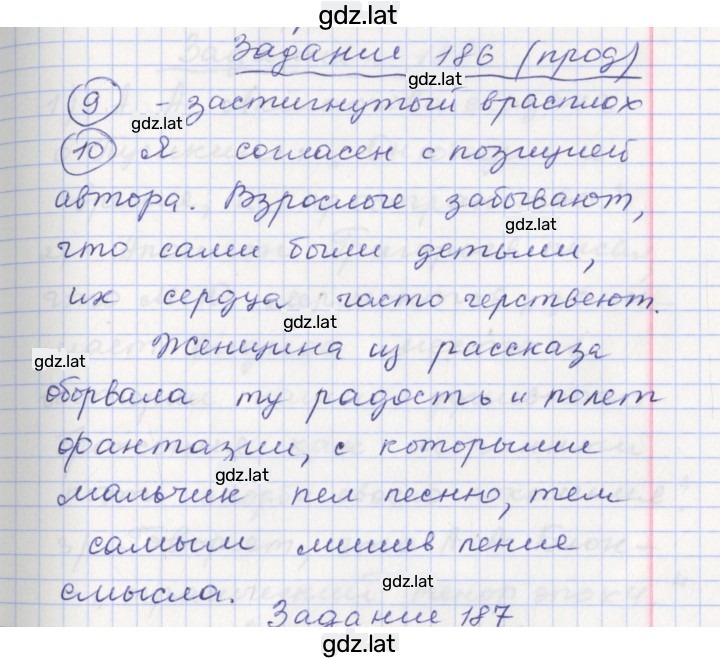 gdz.lat
Задание 186 (прод)
gdz.lat
9 - застигнутый врасплох
gdz.lat
10 Я согласен с позицией
gdz.lat
автора. Взрослые забывают,
gdz.lat
что сами были детьми,
их сердца часто черствеют.
gdz.lat
Женщина из рассказа
gdz.lat
оборвала ту радость и полет
фантазии, с которыми
gdz.lat
мальчик пел песню, тем
самым лишив пение
gdz.lat
смысла.
Задание 187
gdz.lat